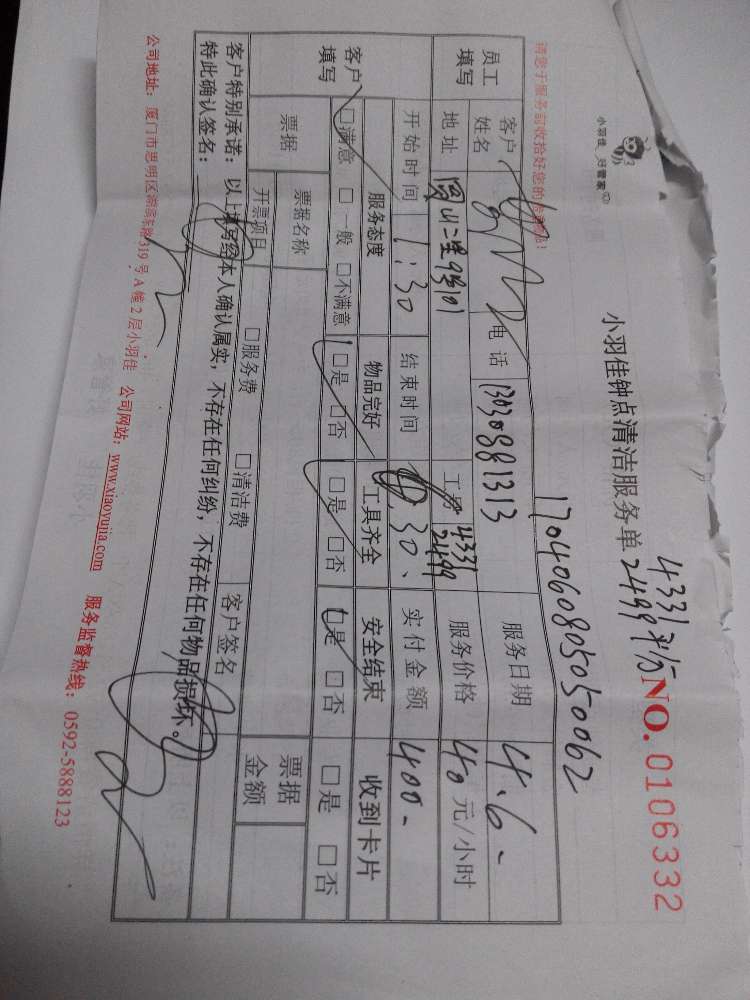 小羽佳 好管家
4331平方
2499
小羽佳钟点清洁服务单 NO. 0106332
请您于服务前收拾好您的
1704060805050062
员工填写 客户姓名 电话 13030881313 服务日期 4.6-
地址 工号 4331 2499 服务价格 40元/小时
开始时间 1:30 结束时间 30 实付金额 400-
客户填写 服务态度 物品完好 工具齐全 安全结束 收到卡片
□满意 □一般 □不满意 □是 □否 □是 □否 □是 □否 □是 □否
票据 票据名称 □服务费 □清洁费 票据金额
开票项目 客户签名
客户特别承诺：以上填写经本人确认属实，不存在任何纠纷，不存在任何物品损坏。
特此确认签名：
公司地址：厦门市思明区湖滨东路319号A幢2层小羽佳 公司网站：www.xiaoyujia.com 服务监督热线：0592-5888123